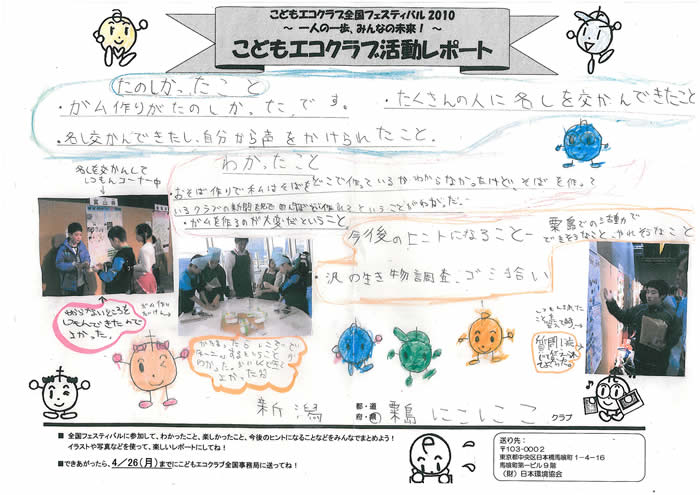 こどもエコクラブ全国フェスティバル 2010
～ 一人の一歩、みんなの未来！ ～
こどもエコクラブ活動レポート
たのしかったこと
・ガム作りがたのしかった。です。
・たくさんの人に名しを交かんできたこと
・名し交かんできたし、自分から声をかけられたこと。
わかったこと
おそば作りでボクはそばをどこで作っているかわからなかったけど、そばを作って
いるクラブの新聞を
ということがわかった。
・ガムを作るのが大変だということ
名しを交かんして
しつもんコーナー中
今後のヒントになること
粟島での活動で
できそうなこと、やれそうなこと
・沢の生き物調査、ゴミ拾い
わからないところを
しつもんできたので
よかった。
ガム作り
たいけん
新潟
都・道
府・県
粟島 にこにこ
クラブ
■ 全国フェスティバルに参加して、わかったこと、楽しかったこと、今後のヒントになることなどをみんなでまとめよう！
イラストや写真などを使って、楽しいレポートにしてね！
■できあがったら、4／26（月）までにこどもエコクラブ全国事務局に送ってね！
送り先：
〒103-0002
東京都中央区日本橋馬喰町1－4－16
馬喰町第一ビル9階
（財）日本環境協会